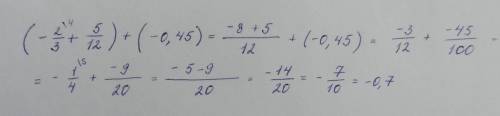 (-2/3\4 + 5/12) + (-0,45) = (-8+5)/12 + (-0,45) = -3/12 + -45/100 -
= -1/4\5 + -9/20 = (-5-9)/20 = -14/20 = -7/10 = -0,7